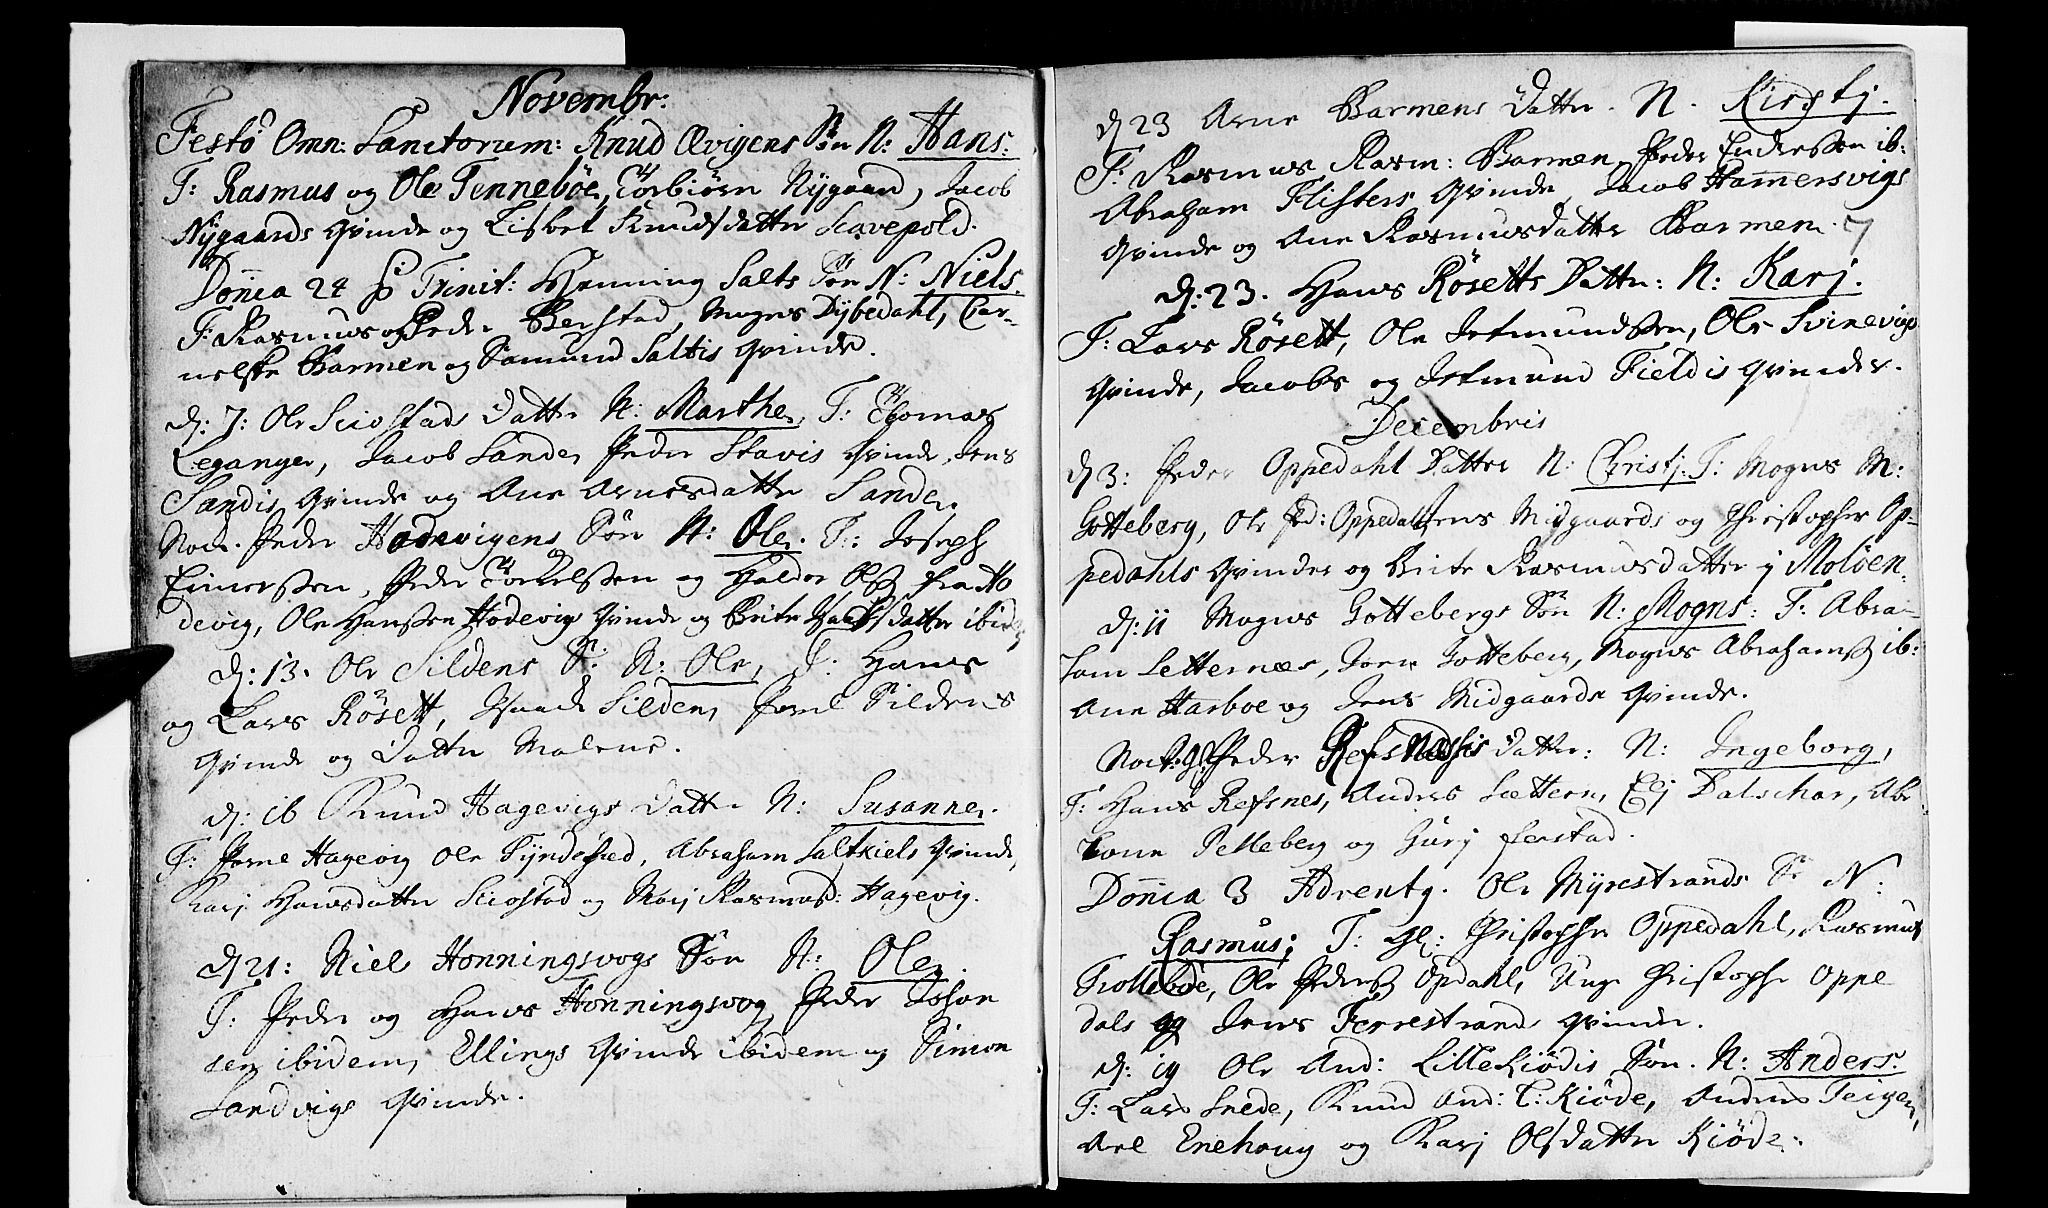 Novembr:
Festo Omn: Sanctorum: Knud Ervigens Søn N: Hans:
T: Rasmus og Ole Tennebøe, Torbiørn Nygaard, Jacob
Nygaards qvinde og Lisbet Knudsdatter Scavepold.
Dom̄ca 24 p Trinit: Henning Salts Søn N: Niels.
T: Rasmus og Peder Berstad, Mogns Dybedahl, Cor-
nelske Barmen og Samund Saltis qvinde.
d: 7: Ole Sciostads Datter N: Marthe. T: Thomas
Leganger, Jacob Sande, Peder Stavis qvinde, Jens
Sandis qvinde og Ane Arnesdatter Sande.
Noct. Peder Hodevigens Søn N: Ole. T: Joseph
Einersen, Peder Torkelsen og Haldor Olss fra Ho
devig, Ole Hansen Hodevigs qvinde og Brite datter ibid
d: 13. Ole Sildens S: N: Ole, T: Hans
og Lars Røsett, Isaach Silden, Poul Sildens
qvinde og Datter Malene.
d: 16 Knud Hagevigs Datter N: Susanne.
T: Poul Hagevig Ole Tyndehed, Abraham Saltkiels qvinde,
Karj Hansdatter Sciostad og Marj Rasmusd: Hagevig.
d 21: Niels Honningsvogs Søn N: Ole.
T: Peder og Hans Honningsvog, Peder Johan
sen ibidem, Ellings qvinde ibidem og Simon
Sandvigs qvinde.
d 23 Arne Barmens Datter. N. Kirstj.
T: Rasmus Rasm: Barmen, Peder Endersen ib:
Abraham Flisters qvinde, Jacob Ham̄ersvigs
qvinde og Ane Rasmusdatter Barmen. 7
d: 23. Hans Røsetts Datter: N: Karj.
T: Lars Røsett, Ole Jetmundsen, Ole Svinevigs
qvinde, Jacobs og Jetmund Fieldis qvinder.
Decembris
d 3: Peder Oppedahl Datter N: Christj. T: Mogns M:
Gotteberg, Ole Ped: Oppedal, Jens Midgaards og Christopher Op-
pedahls qvinder og Brite Rasmusdatter j Moldøen.
d: 11 Mogns Gottebergs Søn N: Mogns: T: Abra-
ham Letternes, Jorn Gotteberg, Mogns Abrahamss ib:
Ane Harboe og Jens Midgaards qvinde.
Noct: Peder Refsnessis Datter: N: Ingeborg,
T: Hans Refsnes, Anders Settern, Elj Dalschar, Abe
lone Pelleberg og Gurj ferstad.
Dom̄ca 3 Adventg. Ole Myrestrands S: N:
Rasmus; T: gl: Christopher Oppedahl, Rasmus
Trollebøe, Ole Pederss Opdahl, Unge Christopher Oppe
dals og Jens Ferrestrands qvinder.
d: 19 Ole And: Lillekiødis Søn. N: Anders.
T: Lars Snede, Knud And: L: Kiøde, Anders Teigen,
Ane Enehoug og Karj Olsdatter Kiøde.